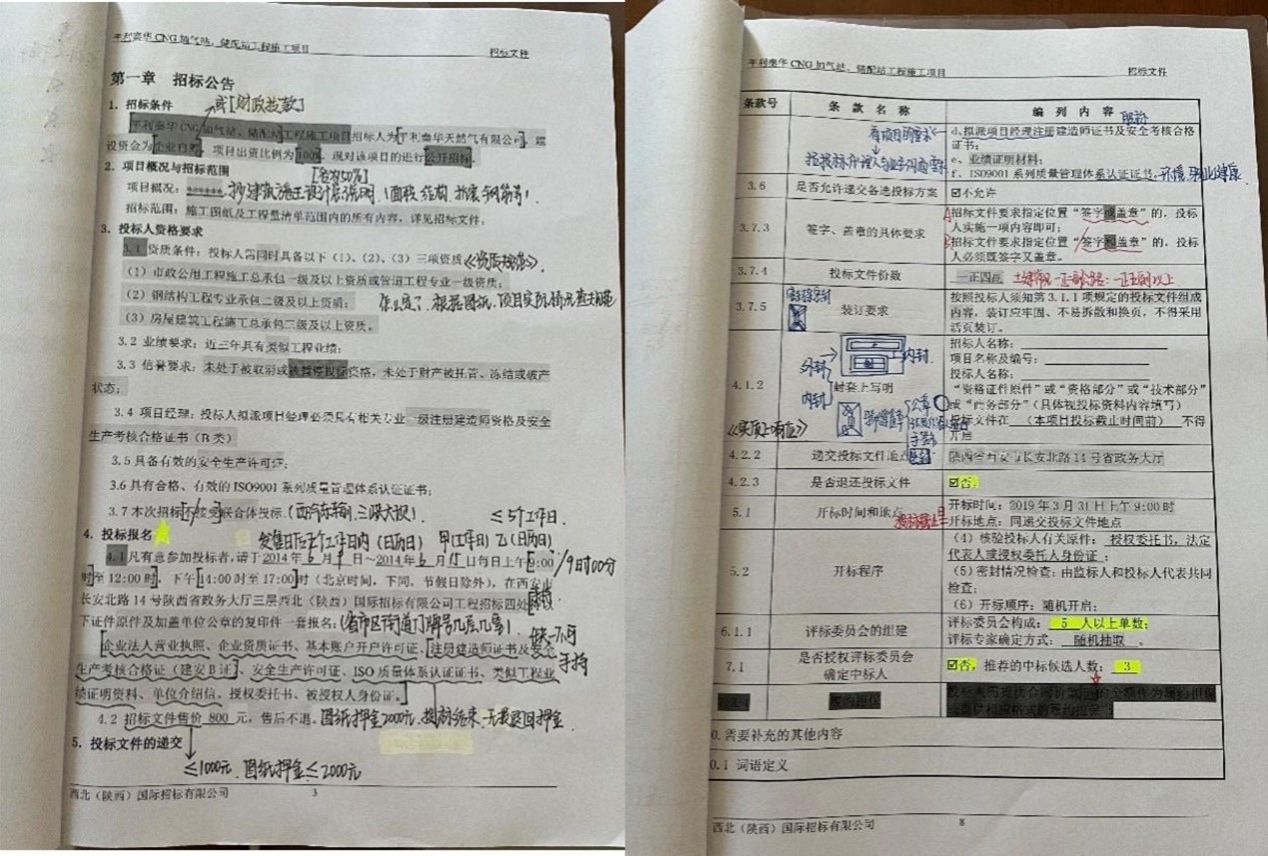 平利泰华CNG加气站、储配站工程施工项目 招标文件
第一章 招标公告
或[财政拨款]
1. 招标条件
平利泰华CNG加气站、储配站工程施工项目招标人为平利泰华天然气有限公司，建
设资金为企业自筹，项目出资比例为100%，现对该项目的进行公开招标。
2. 项目概况与招标范围
项目概况：
招标范围：施工图纸及工程量清单范围内的所有内容，详见招标文件。
3. 投标人资格要求
3.1 资质条件：投标人需同时具备以下（1）、（2）、（3）三项资质《资质标准》.
（1）市政公用工程施工总承包一级及以上资质或管道工程专业一级资质；
（2）钢结构工程专业承包二级及以上资质；
（3）房屋建筑工程施工总承包二级及以上资质。
3.2 业绩要求：近三年具有类似工程业绩；
3.3 信誉要求：未处于被取消或被暂停投标资格，未处于财产被托管、冻结或破产
状态；
3.4 项目经理：投标人拟派项目经理必须具有相关专业一级注册建造师资格及安全
生产考核合格证书（B类）
3.5 具备有效的安全生产许可证；
3.6 具有合格、有效的ISO9001系列质量管理体系认证证书；
3.7 本次招标[不接受]联合体投标.
≤5个工作日.
4. 投标报名
发售日后5个工作日内（日历日） 甲（工作日）乙（日历日）
4.1 凡有意参加投标者，请于2014年6月 日～2014年6月15日每日上午[9:00 /9时00分
时至12:00时，下午[14:00时至17:00]时（北京时间，下同，节假日除外），在西安市
长安北路14号陕西省政务大厅三层西北（陕西）国际招标有限公司工程招标四处持以
下证件原件及加盖单位公章的复印件一套报名：（省市区街道门牌号几层几室）.
缺一不可
[企业法人营业执照、企业资质证书、基本账户开户许可证、注册建造师证书及安全
生产考核合格证（建安B证）、安全生产许可证、ISO质量体系认证证书、类似工程业
绩证明资料、单位介绍信、授权委托书、被授权人身份证。
4.2 招标文件售价 800 元，售后不退。图纸押金2000元，投标结束，无损退回押金
5. 投标文件的递交
≤1000元. 图纸押金≤2000元
西北（陕西）国际招标有限公司 3
平利泰华CNG加气站、储配站工程施工项目 招标文件
条款号 条款名称 编列内容
d、拟派项目经理注册建造师证书及安全考核合格
证书；
e、业绩证明材料；
f、ISO9001系列质量管理体系认证证书.
看项目的要求
3.6 是否允许递交备选投标方案 ☑不允许
3.7.3 签字、盖章的具体要求
招标文件要求指定位置“签字或盖章”的，投标
人实施一项内容即可；
招标文件要求指定位置“签字和盖章”的，投标
人必须既签字又盖章。
3.7.4 投标文件份数 一正四副
3.7.5 装订要求
按照投标人须知第3.1.1项规定的投标文件组成
内容，装订应牢固、不易拆散和换页，不得采用
活页装订。
4.1.2 封套上写明
外封
内封
内封
招标人名称：
项目名称及编号：
投标人名称：
“资格证件原件”或“资格部分”或“技术部分”
或“商务部分”（具体视投标资料内容填写）
投标文件在 （本项目投标截止时间前） 不得
开启
公章
《实质上响应》
4.2.2 递交投标文件地点 陕西省西安市长安北路14号省政务大厅
4.2.3 是否退还投标文件 ☑否；
5.1 开标时间和地点
开标时间：2019年3月31日上午9:00时
开标地点：同递交投标文件地点
5.2 开标程序
（4）核验投标人有关原件： 授权委托书，法定
代表人或授权委托人身份证 ；
（5）密封情况检查：由监标人和投标人代表共同
检查；
（6）开标顺序：随机开启；
6.1.1 评标委员会的组建
评标委员会构成： 5 人以上单数；
评标专家确定方式： 随机抽取 。
7.1 是否授权评标委员会
确定中标人
☑否，推荐的中标候选人数： 3
履约担保
0. 需要补充的其他内容
0.1 词语定义
西北（陕西）国际招标有限公司 8